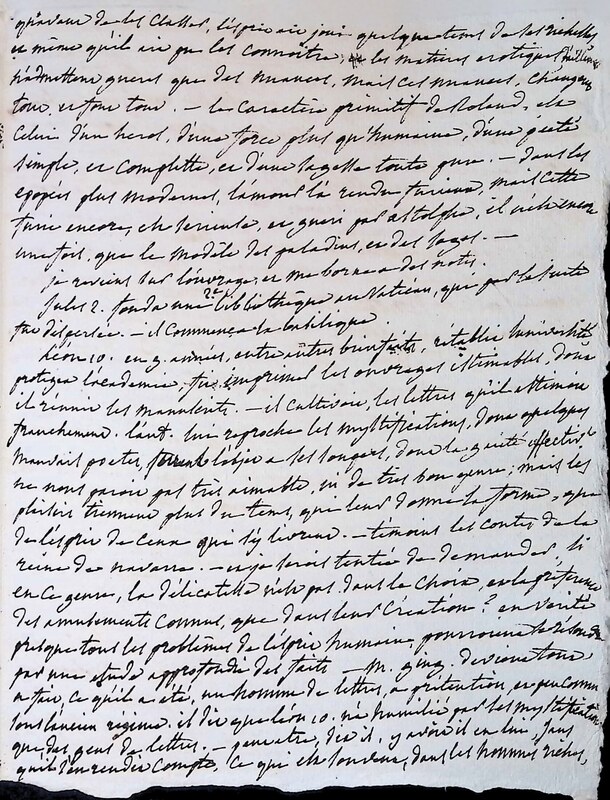 de les classer, l'esprit jouit quelque tems de ses richesses
et même qu'il ait pu les connoître, les matières erotiques
n'admettent gueres que des nuances, mais ces nuances, changent
tout, et font tout. — le caractère primitif de Roland, est
celui d'un heros, d'une force plus qu'humaine, d'une piété
simple, et complette, et d'une sagesse toute pure. — dans les
epopées plus modernes, l'amour l'a rendu furieux, mais cette
furie encore, est serieuse, et gueri par astolphe, il n'est encore
une fois, que le modèle des paladins, et des sages. —
je reviens sur l'ouvrage, et me borne a des notes.
jules 2. fonda une 2e bibliothèque au Vatican, que par la suite
fut dispersée. — il commença la basilique
Léon 10. en 9. années, entre autres bienfaits, retablit l'université
protegea l'academie, fit imprimer les ouvrages estimables, dont
il réunit les manuscrits. — il cultivoit, les lettres qu'il aimoit
franchement. l'aut. lui reproche les mystifications, dont quelques
mauvais poetes, furent l'objet a ses soupers, dont la gaieté
ne nous paroit pas très aimable, ni de très bon genre; mais les
plaisirs tiennent plus du tems, qui leur donne la forme, que
de l'esprit de ceux qui s'y livrent. — témoins les contes de la
reine de navarre. — et je serois tentée de demander, si
en ce genre, la délicatesse n'est pas dans le choix, et la préférence
des amusements connus, que dans leur création? en verité
presque tous les problèmes de l'esprit humain, pourroient se résoudre
par une etude approfondie des faits — M. ging. devient tout
a fait ce qu'il a été, un homme de lettres, a prétention, et peu connu
sous l'ancien regime. il dit que léon 10. n'a humilié par les mystifications
que des gens de lettres. — peut être, dit il, y avoit il en lui, sans
qu'il s'en rendit compte, ce qui est souvent, dans les hommes riches,